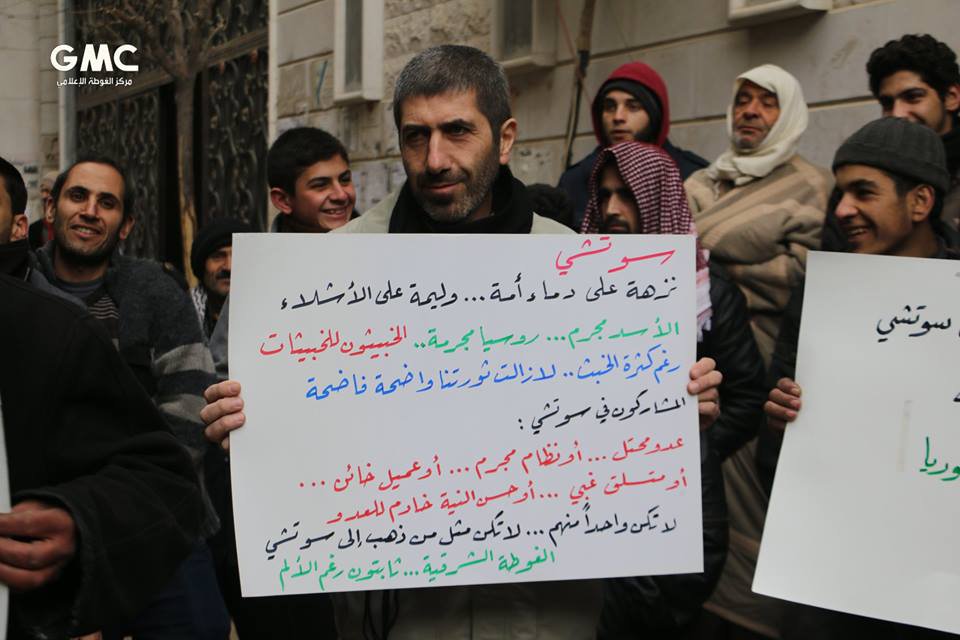 GMC
مركز الغوطة الإعلامي
سوتشي
نزهة على دماء أمة... وليمة على الأشلاء
الأسد مجرم... روسيا مجرمة.. الخبيثون للخبيثات
رغم كثرة الخبث.. لازالت ثورتنا واضحة فاضحة
المشاركون في سوتشي :
عدو محتل... أو نظام مجرم... أو عميل خائن...
أو متسلق غبي... أو حسن النية خادم للعدو
لا تكن واحداً منهم... لا تكن مثل من ذهب إلى سوتشي
الغوطة الشرقية... ثابتون رغم الألم
سوتشي
سوريا